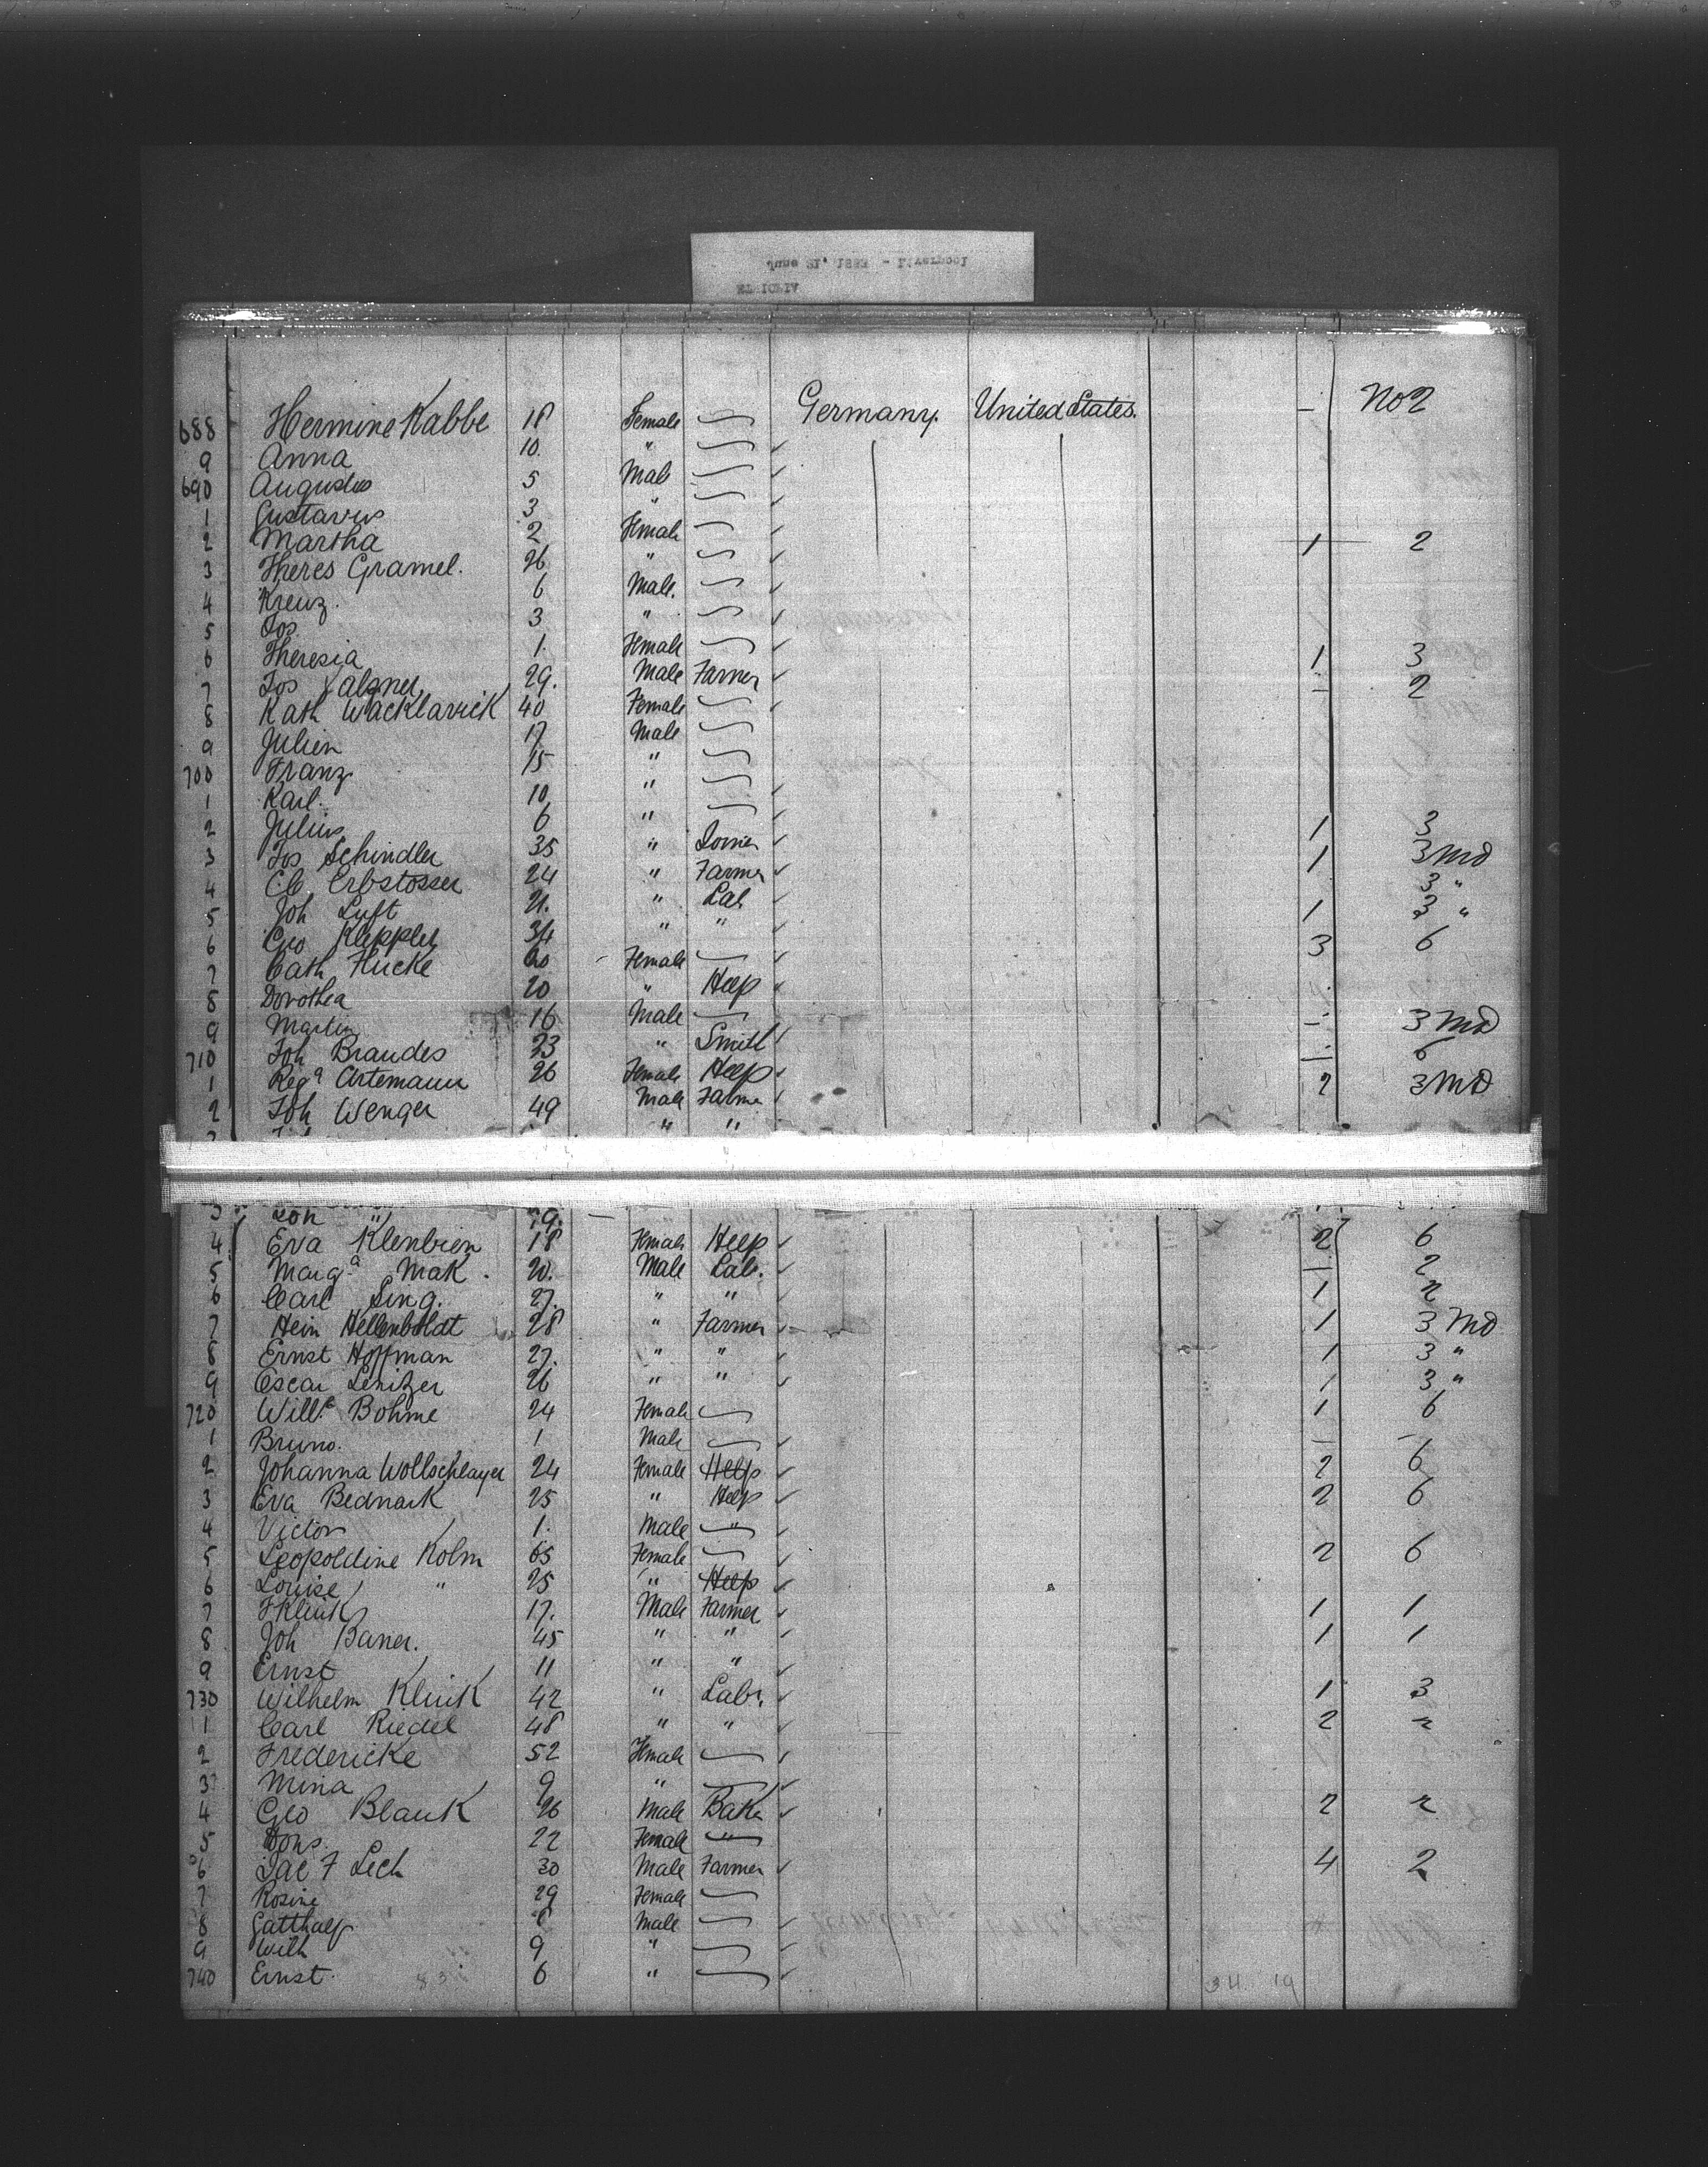 688 Hermine Kabbe 18 Female Germany. United States. - No 2
9 Anna 10. "
690 Augustus 5 Male
1 Gustavus 3 "
2 Martha 2 Female 1 2
3 Theres Gramel. 26 "
4 Kreuz. 6 Male.
5 Jos 3 "
6 Theresia 1. Female 1 3
7 Jos 29. Male Farmer - 2
8 Kath Wacklavick 40 Female
9 Julien 17 Male
700 Franz 15 "
1 Karl. 10 "
2 Julius 6 " 1 3
3 Jos Schindler 35 " 1 3 Md
4 Erbstosser 24 " Farmer 3 "
5 Joh Luft 21. " Lab 1 3 "
6 Geo Kleppler 34 " " 3 6
7 Cath Hucke 60 Female
8 Dorothea 20 " Help
9 Martin 16 Male - 3 Md
710 Joh Brandes 23 " Smith 6
1 Rega Artemann 26 Female Help 2 3 Md
2 Joh Wenger 49 Male Farmer
" "
3 Joh " 19.
4 Eva Klenbien 18 Female Help 2 6
5 Marga Mak. 20. Male Lab. 2
6 Carl Sing. 27. " " 1 2
7 Hein Hellenboldt 28 " Farmer 1 3 Md
8 Ernst Hoffman 27. " " 1 3 "
9 Oscar Lenitzer 26 " " 1 3 "
720 Bohme 24 Female 1 6
1 Bruno. 1 Male - -
2 Johanna Wollschlayer 24 Female Help 2 6
3 Eva Bednark 25 " Help 2 6
4 Victor 1. Male "
5 Leopoldine Kolm 65 Female 2 6
6 Louise " 25 " Help
7 17. Male Farmer 1 1
8 Joh Baner. 45 " " 1 1
9 Ernst 11 " "
730 Wilhelm Kluik 42 " Labr. 1 3
1 Carl Riedel 48 " " 2 2
2 Fredericke 52 Female
3 Mina 9 "
4 Geo Blauk 26 Male Baker 2 2
5 22 Female "
6 Jac F Lech 30 Male Farmer 4 2
7 Rosine 29 Female
8 Gatthalf 8 Male
9 Wilh 9 "
740 Ernst. 6 "